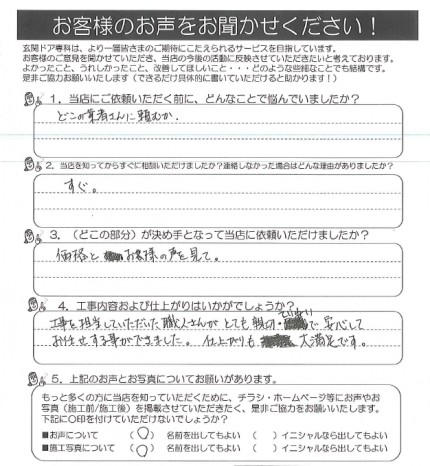 お客様のお声をお聞かせください！
玄関ドア専科は、より一層皆さまのご期待にこたえられるサービスを目指しています。
お客様のご意見を聞かせていただき、当店の今後の活動に反映させていただきたいと考えております。
よかったこと、うれしかったこと、改善してほしいこと・・・どのような些細なことでも結構です。
是非ご協力お願いいたします（できるだけ具体的に書いていただけると助かります！）
1．当店にご依頼いただく前に、どんなことで悩んでいましたか？
どこの業者さんに頼むか．
2．当店を知ってからすぐに相談いただけましたか？連絡しなかった場合はどんな理由がありましたか？
すぐ。
3．（どこの部分）が決め手となって当店に依頼いただけましたか？
価格と お客様の声を見て。
4．工事内容および仕上がりはいかがでしょうか？
工事を担当していただいた職人さんがとても親切・ていねいで安心して
お任せする事ができました。仕上がりも 大満足です。
5．上記のお声とお写真についてお願いがあります。
もっと多くの方に当店を知っていただくために、チラシ・ホームページ等にお声やお
写真（施工前/施工後）を掲載させていただきたく、是非ご協力をお願いいたします。
下記に○印を付けていただけないでしょうか？
■お声について （○） 名前を出してもよい （ ） イニシャルなら出してもよい
■施工写真について （○） 名前を出してもよい （ ） イニシャルなら出してもよい